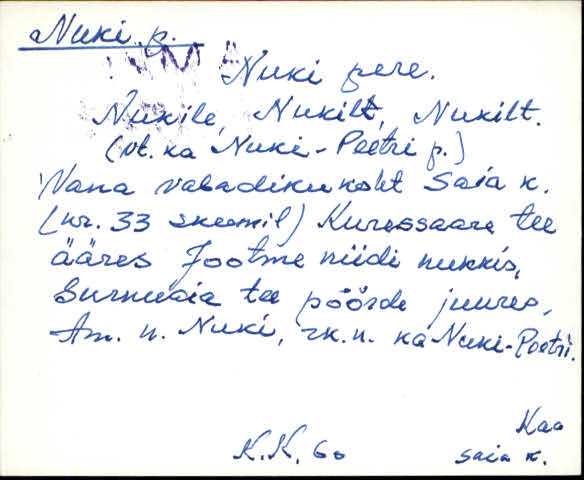 Nuki p.
Nuki pere.
Nukile, Nukilt, Nukilt.
(vt. ka Nuki-Peetri p.)
Vana vabadikukoht Saia k.
(nr. 33 skeemil) Kuressaare tee
ääres Jootme niidi nukkis,
Surnuaia tee pöörde juures,
Am. n. Nuki, rk. n. ka Nuki-Peetri.
Kaa
K.K. 60
Saia k.